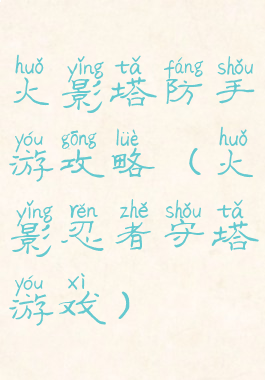 huǒ yǐng tǎ fáng shǒu
火影塔防手
yóu gōng lüè huǒ
游攻略（火
yǐng rěn zhě shǒu tǎ
影忍者守塔
yóu xì
游戏）